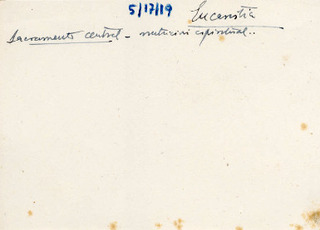 5/17/19 Eucaristia
Sacramento central - nutricion espiritual..